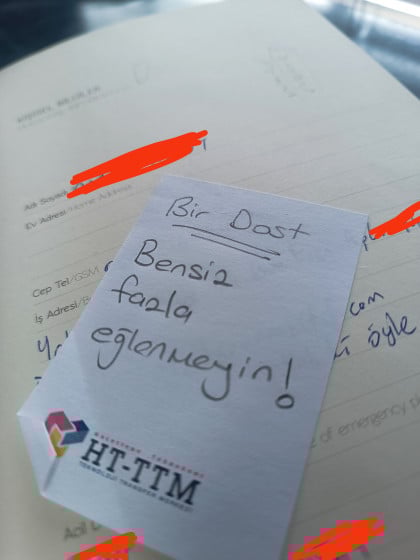 KİŞİSEL BİLGİLER
Adı Soyadı
Ev Adresi/Home Address
Bir Dost
Bensiz
fazla
eğlenmeyin!
Cep Tel/GSM
İş Adresi/B
com
öyle
of emergency
HT-TTM
TEKNOLOJİ TRANSFER MERKEZİ
Acil